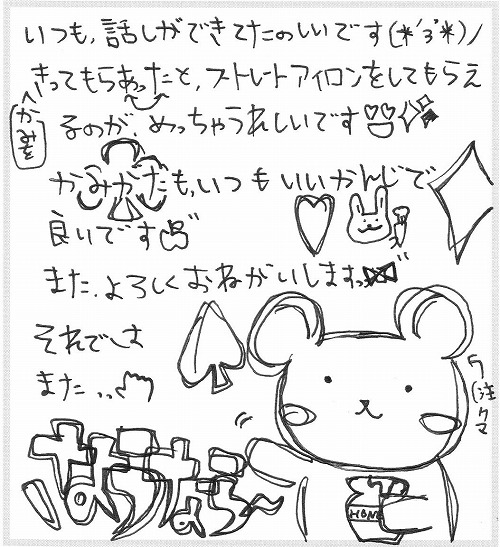 いつも、話しができてたのしいです(*'з'*)ノ
きってもらあったと、ストレートアイロンをしてもらえ
かみを
るのが、めっちゃうれしいです
かみがたも、いつもいいかんじで
良いです
また、よろしくおねがいしますっ
それでは
また、、
さようなら〜
注クマ
HONEY